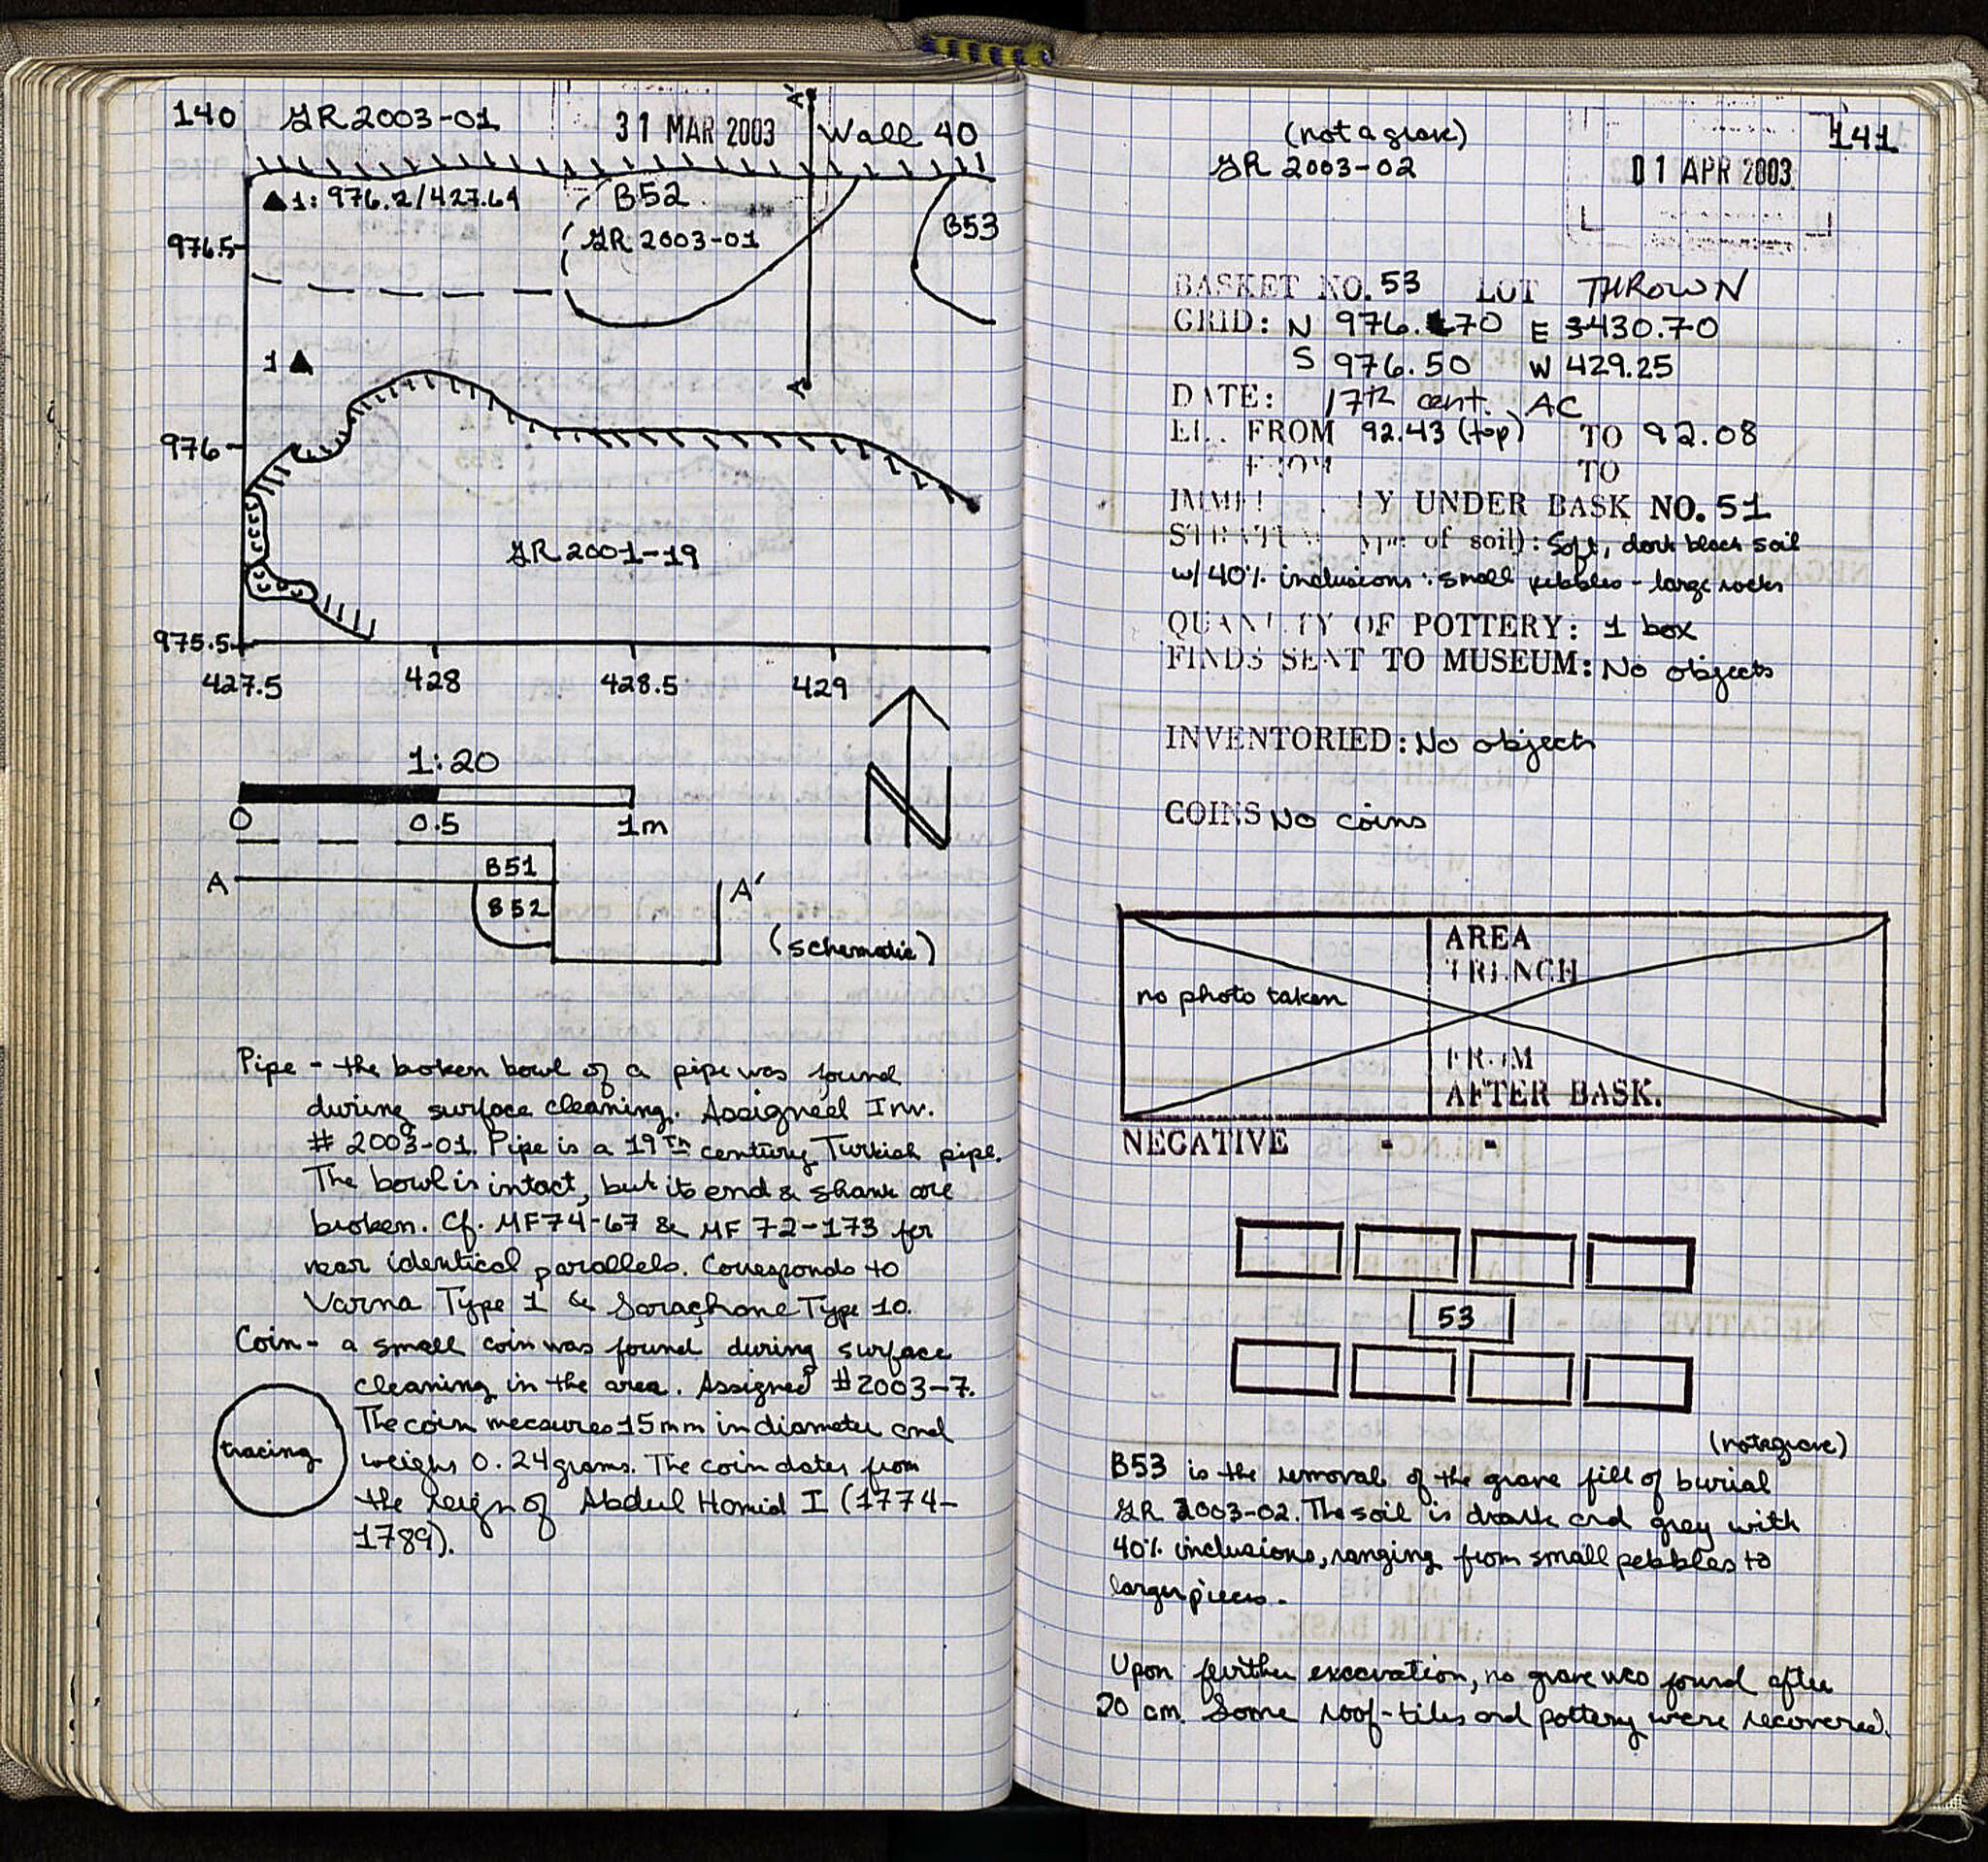 140 GR 2003-01 31 MAR 2003 Wall 40
A'
▲1: 976.2/427.64 B52
GR 2003-01 B53
976.5
1▲
A
976
GR 2001-19
975.5
427.5 428 428.5 429
1:20
N
0 0.5 1m
B51
A A'
B52
(schematic)
Pipe - the broken bowl of a pipe was found
during surface cleaning. Assigned Inv.
# 2003-01. Pipe is a 19th century Turkish pipe.
The bowl is intact, but its end & shank are
broken. Cf. MF74-67 & MF 72-173 for
near identical parallels. Corresponds to
Varna Type 1 & Saraçhane Type 10.
Coin - a small coin was found during surface
cleaning in the area. Assigned #2003-7.
The coin measures 15mm in diameter and
tracing
weighs 0.24 grams. The coin dates from
the reign of Abdul Hamid I (1774-
1789).
141
(not a grave)
GR 2003-02 01 APR 2003
BASKET NO. 53 LOT THROWN
GRID: N 976.70 E 430.70
S 976.50 W 429.25
DATE: 17th cent. AC
EL. FROM 92.43 (top) TO 92.08
FROM TO
UNDER BASK NO. 51
of soil): Soft, dark black soil
w/ 40% inclusions: small pebbles - large rocks
QUANTITY OF POTTERY: 1 box
FINDS SENT TO MUSEUM: No objects
INVENTORIED: No objects
COINS No coins
AREA
TRENCH
no photo taken
FROM
AFTER BASK.
NEGATIVE - -
53
(not a grave)
B53 is the removal of the grave fill of burial
GR 2003-02. The soil is dark and grey with
40% inclusions, ranging from small pebbles to
larger pieces.
Upon further excavation, no grave was found after
20 cm. Some roof-tiles and pottery were recovered.